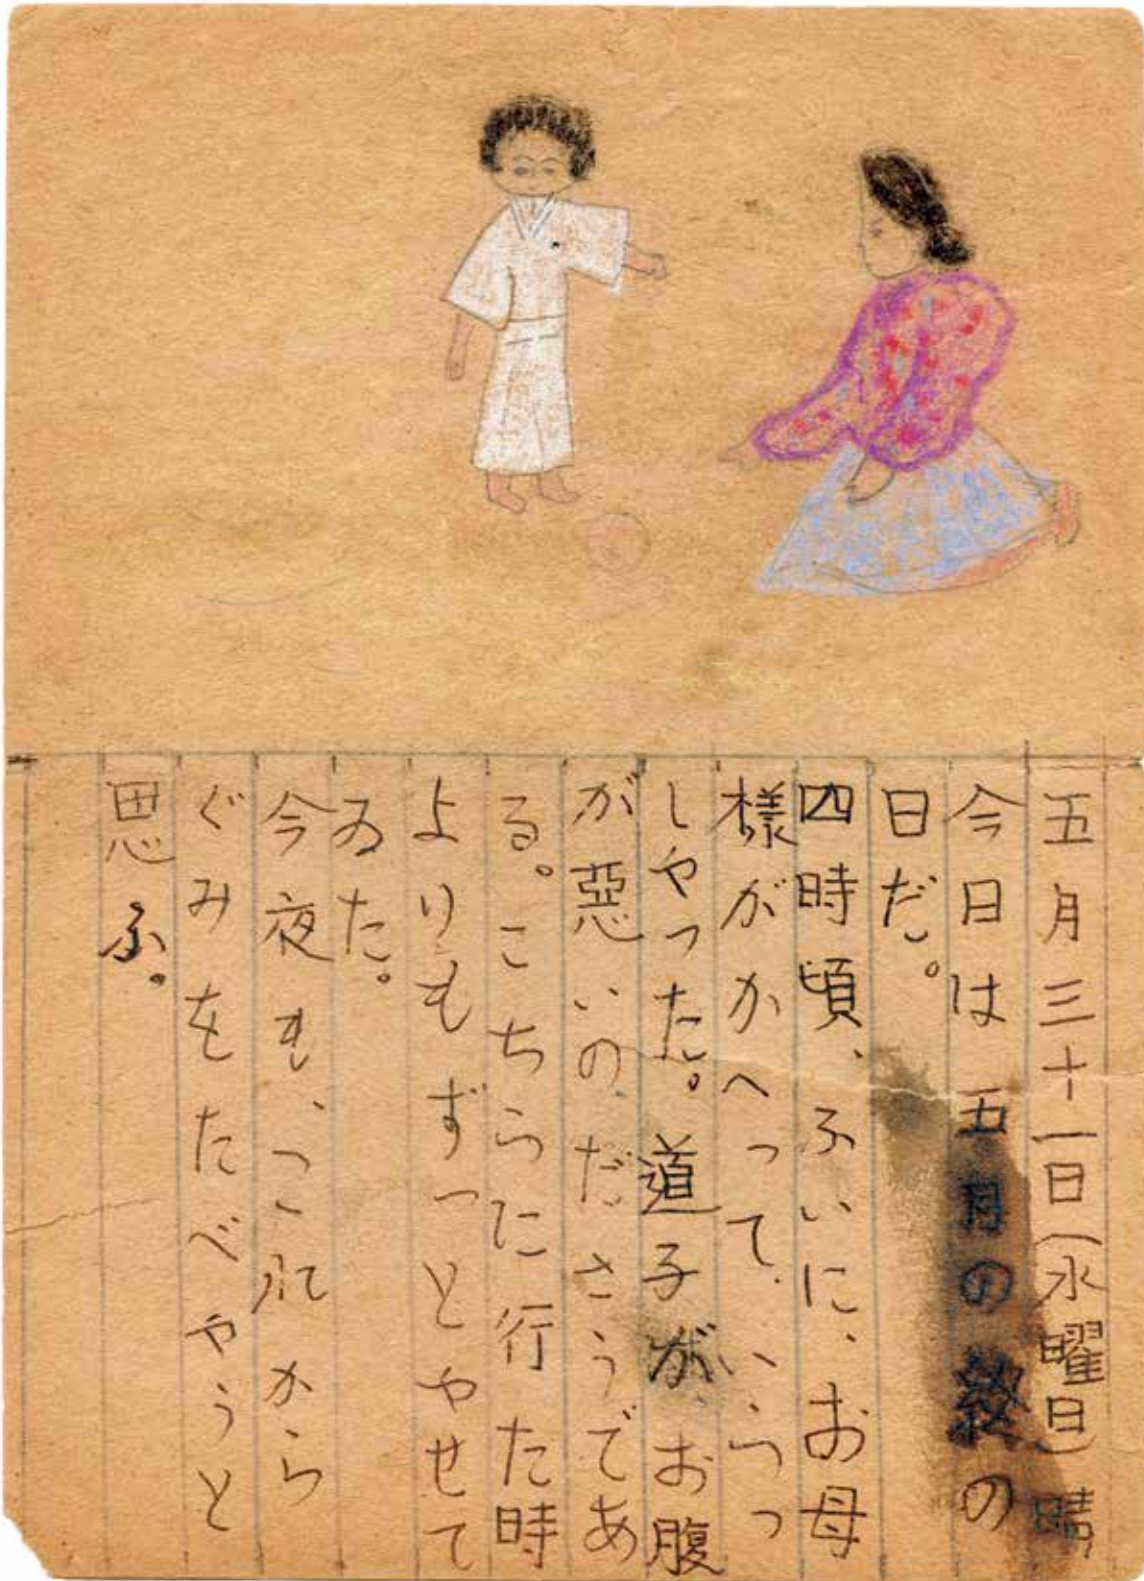 五月三十一日(水曜日)晴
今日は五月の終の
日だ。
四時頃、ふいに、お母
様がかへって、いらっ
しやった。道子が、お腹
が惡いのださうであ
る。こちらに行た時
よりもずっとやせて
ゐた。
今夜も、これから
ぐみをたべやうと
思ふ。